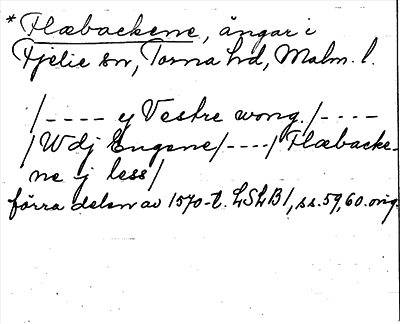 *Flæbackene, ängar i
Fjelie sn, Torna hd, Malm. l.
/---- y Vestre wong./----
/Wdj Engene/----/Flæbacke-
ne j less/
förra delen av 1570-t. LSLB1, ss. 59, 60. orig.